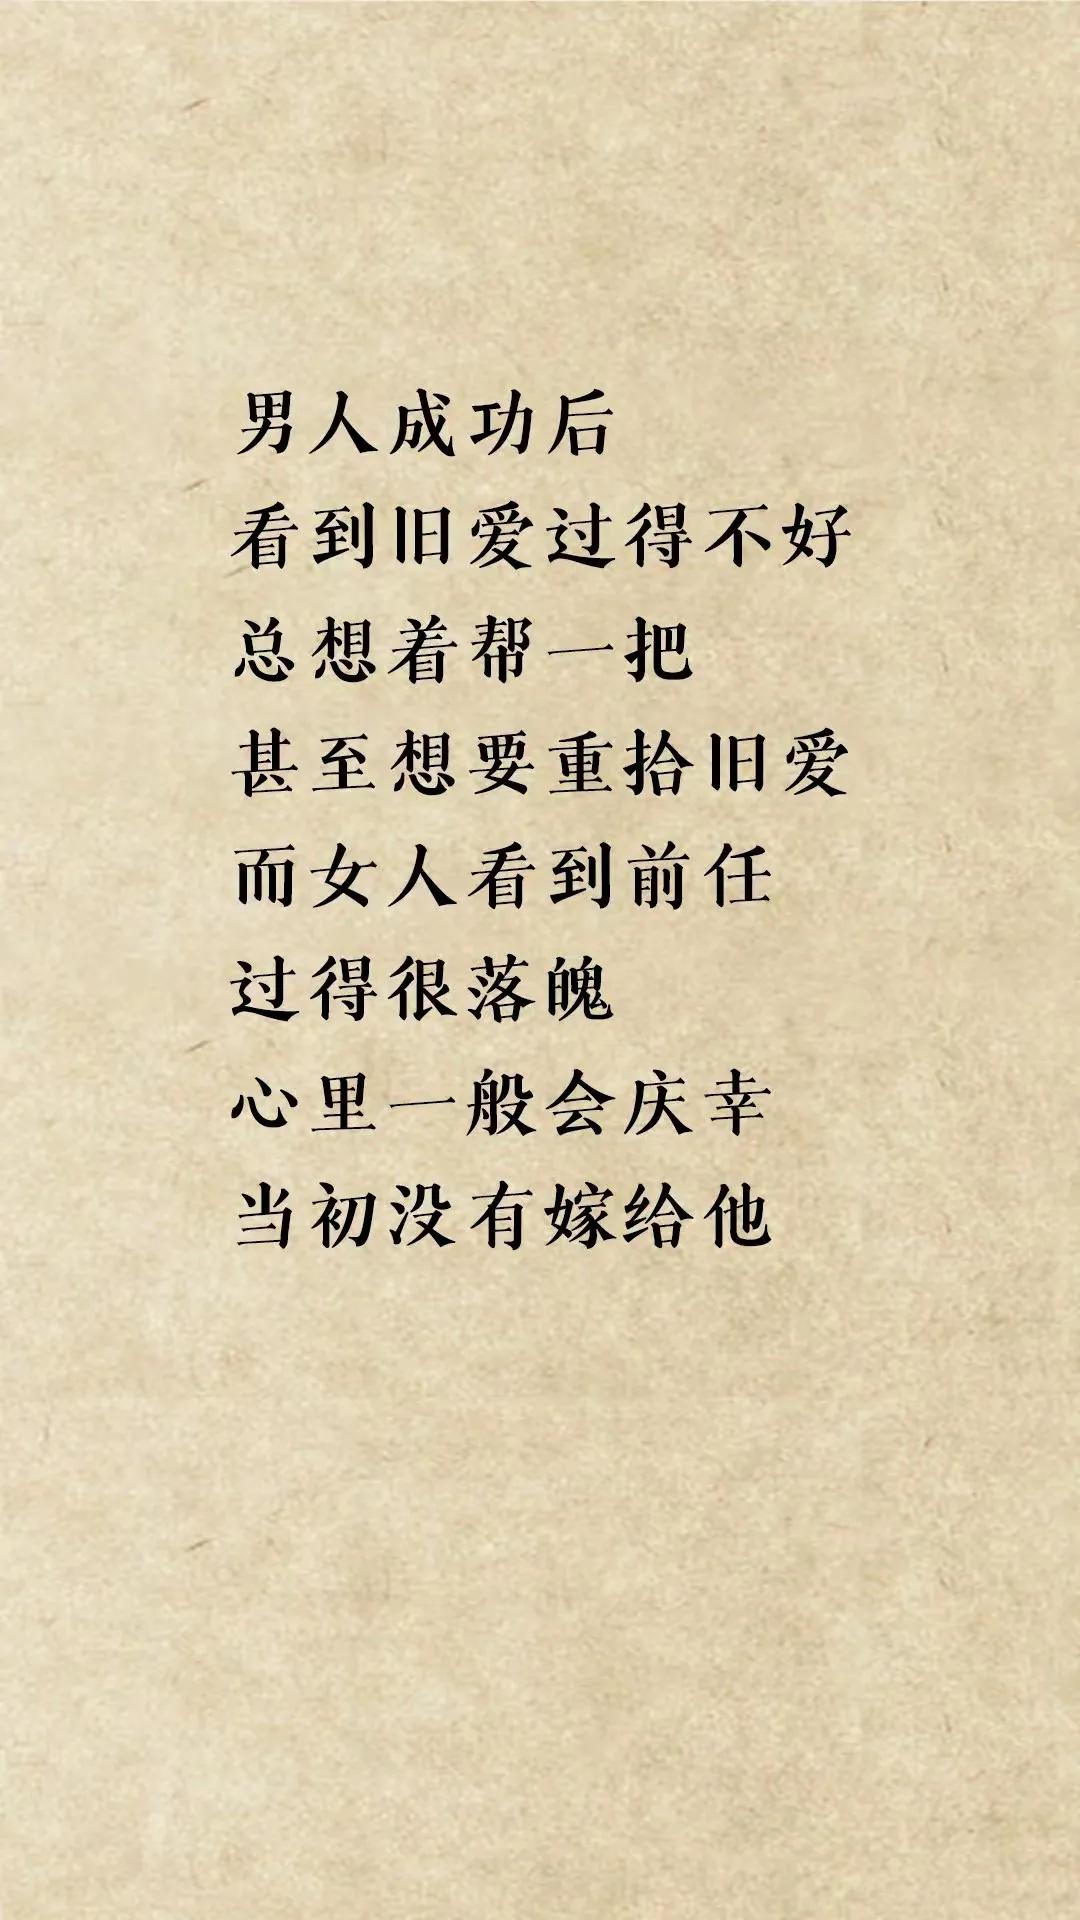 男人成功后
看到旧爱过得不好
总想着帮一把
甚至想要重拾旧爱
而女人看到前任
过得很落魄
心里一般会庆幸
当初没有嫁给他